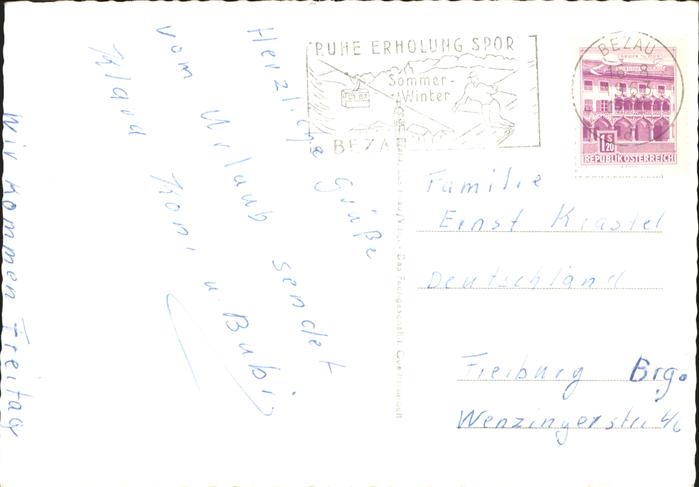 RUHE ERHOLUNG SPOR
Sommer-
Winter
BEZA
BEZAU
1 S 20
REPUBLIK ÖSTERREICH
Herzliche Grüße
vom Urlaub sendet
Klara Roni u. Bubi
Wir kommen Freitag
Familie
Ernst Krastel
Deutschland
Freiburg Brg.
Wenzingerstr.